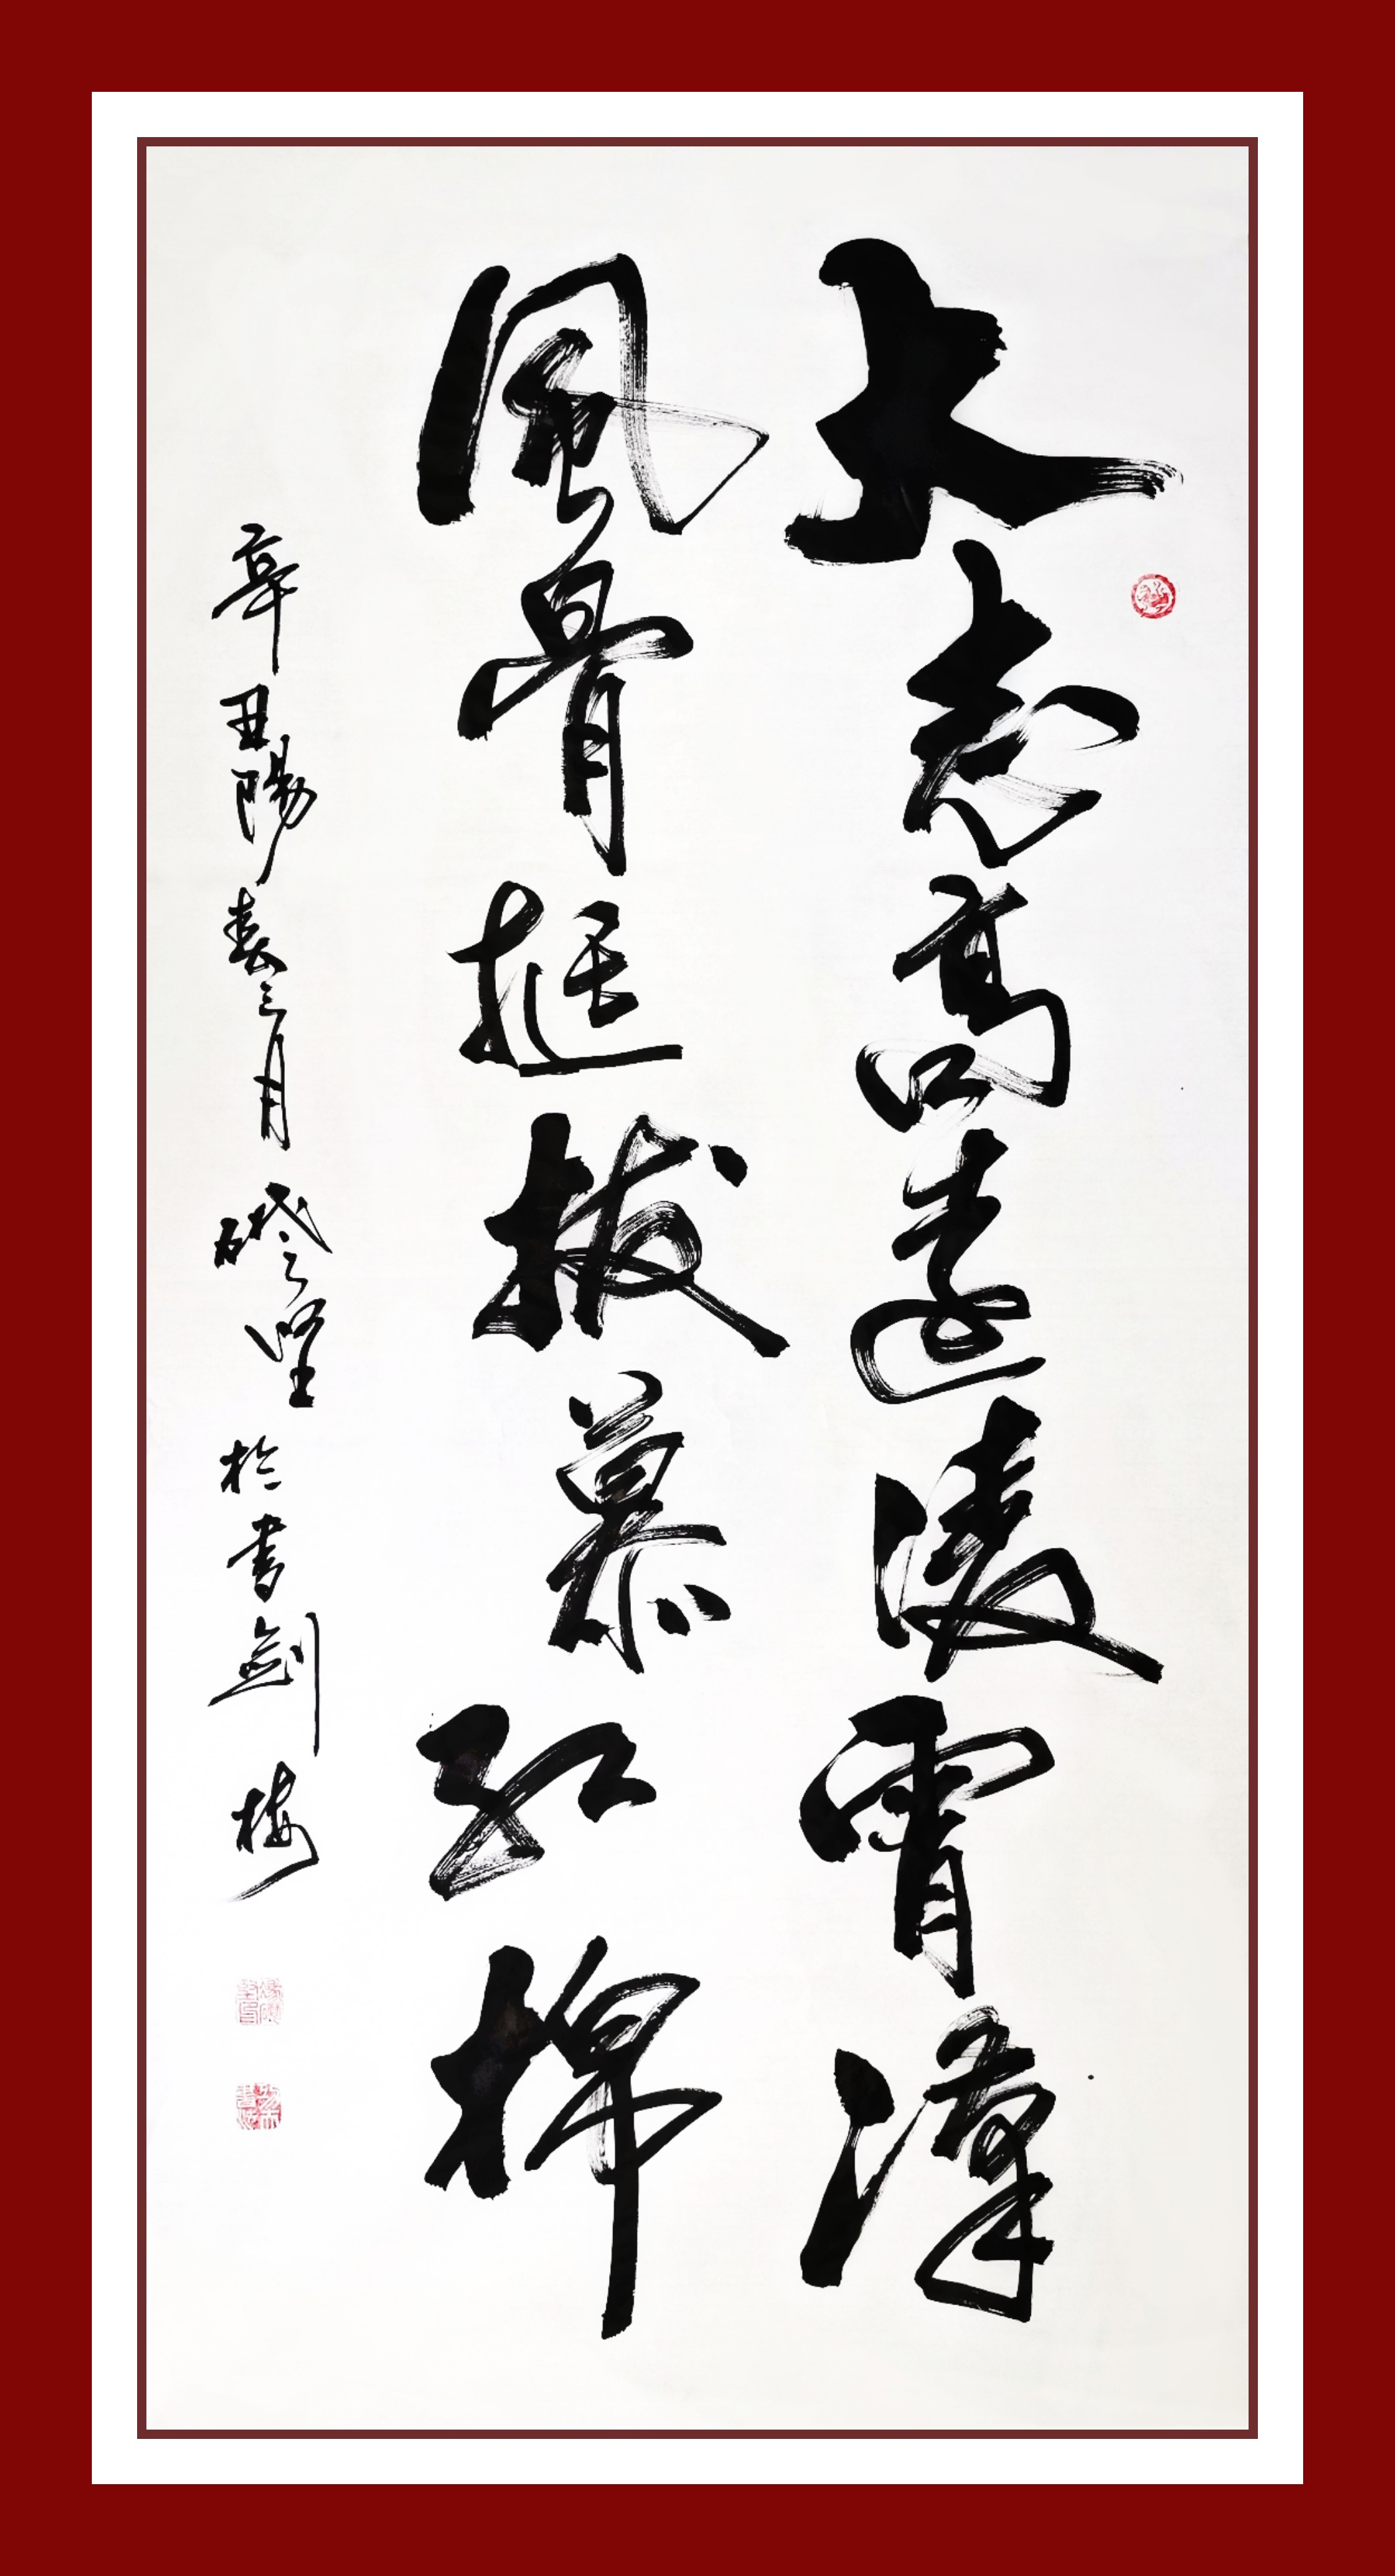 大志高遠凌霄漢
風骨挺拔慕红棉
辛丑陽春三月 磴堅 於書劍梅